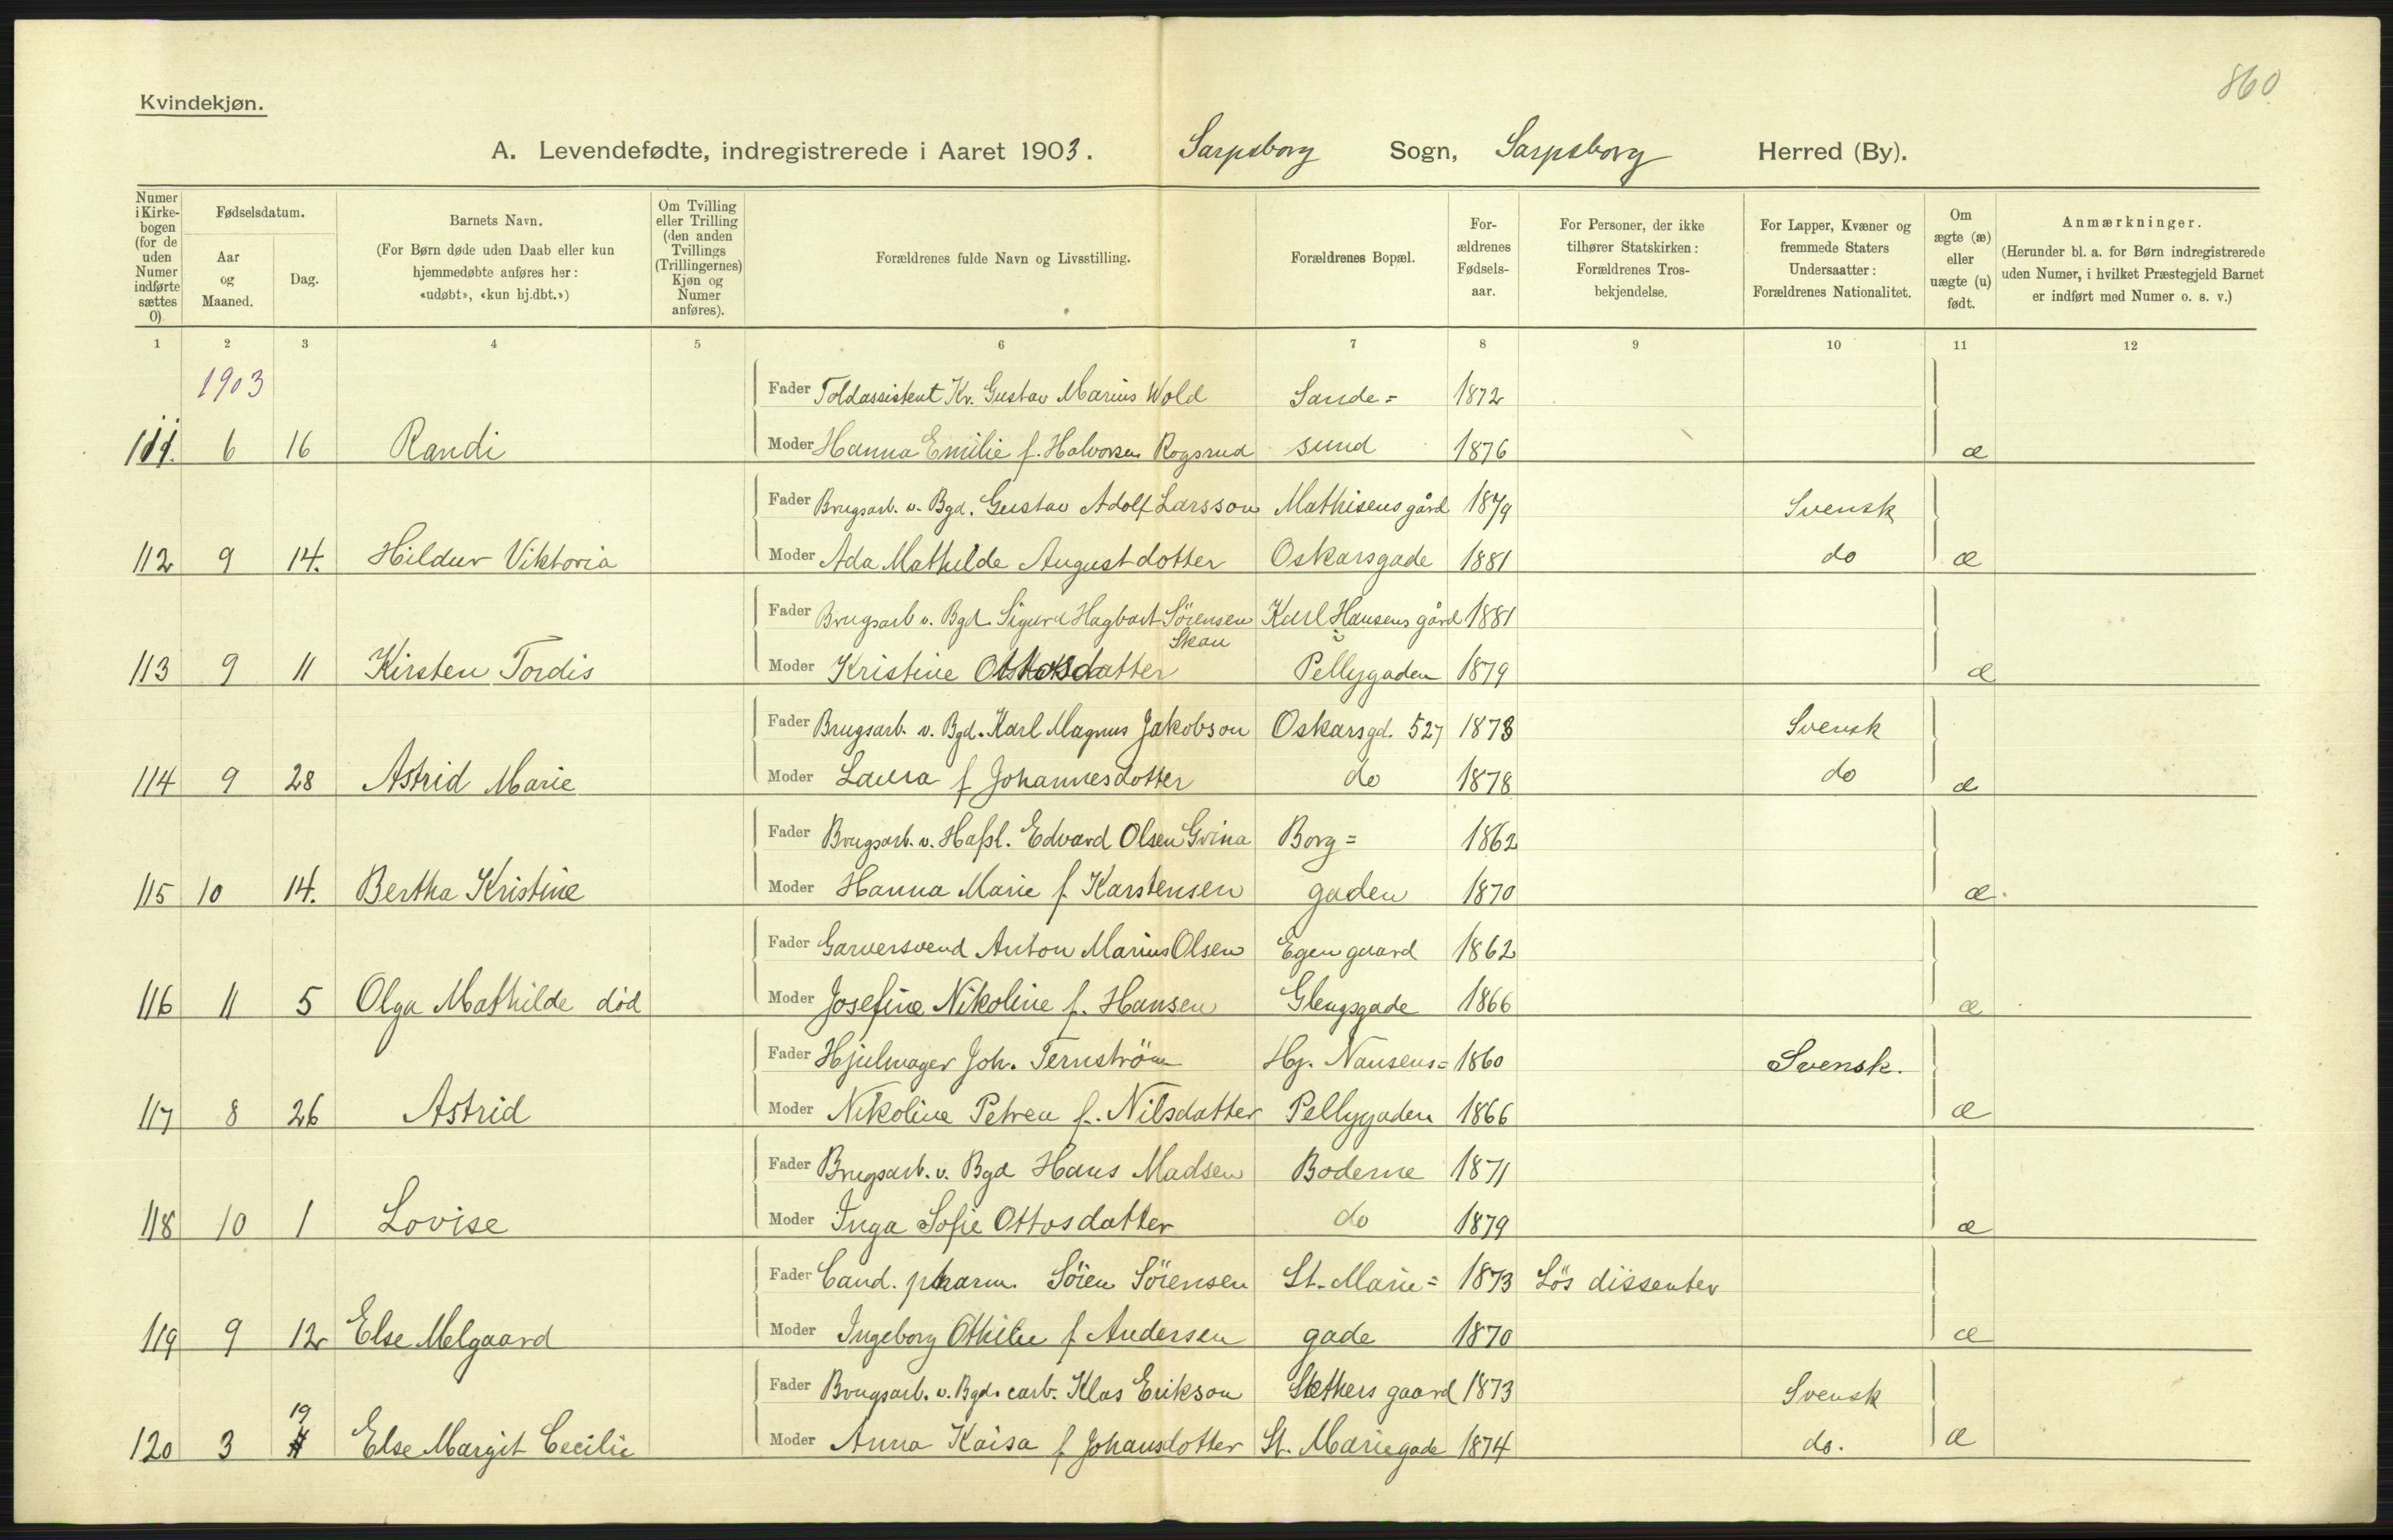 860
Kvindekjøn.
A. Levendefødte, indregistrerede i Aaret 1903. Sarpsborg Sogn, Sarpsborg Herred (By).
Numer i Kirkebogen (for de uden Numer indførte sættes 0).
Fødselsdatum.
Aar og Maaned.
Dag.
Barnets Navn.
(For Børn døde uden Daab eller kun hjemmedøbte anføres her: «udøbt», «kun hj.dbt.»)
Om Tvilling eller Trilling (den anden Tvillings (Trillingernes) Kjøn og Numer anføres).
Forældrenes fulde Navn og Livsstilling.
Forældrenes Bopæl.
Forældrenes Fødselsaar.
For Personer, der ikke tilhører Statskirken: Forældrenes Trosbekjendelse.
For Lapper, Kvæner og fremmede Staters Undersaatter: Forældrenes Nationalitet.
Om ægte (æ) eller uægte (u) født.
Anmærkninger.
(Herunder bl. a. for Børn indregistrerede uden Numer, i hvilket Præstegjeld Barnet er indført med Numer o. s. v.)
1 2 3 4 5 6 7 8 9 10 11 12
1903
Fader Toldassistent Kr. Gustav Marius Wold Sande= 1872
111. 6 16 Randi Moder Hanna Emilie f. Halvorsen Rogsrud sund 1876 æ
Fader Brugsarb. v. Bgd. Gustav Adolf Larsson Mathisens gård 1879 Svensk
112 9 14. Hildur Viktoria Moder Ada Mathilde Augustdotter Oskarsgade 1881 do æ
Fader Brugsarb v. Bgd. Sigurd Hagbart Sörensen Karl Hansens gård 1881
Skau i
113 9 11 Kirsten Tordis Moder Kristine Ottosdatter Pellygaden 1879 æ
Fader Brugsarb. v. Bgd. Karl Magnus Jakobson Oskarsgd. 527 1878 Svensk
114 9 28 Astrid Marie Moder Laura f Johannesdotter do 1878 do æ
Fader Brugsarb. v. Hafsl. Edvard Olsen Grina Borg= 1862
115 10 14. Bertha Kristine Moder Hanna Marie f. Karstensen gaden 1870 æ.
Fader Garversvend Anton Marius Olsen Egen gaard 1862
116 11 5 Olga Mathilde död Moder Josefine Nikoline f. Hansen Glengsgade 1866 æ
Fader Hjulmager Joh. Ternström Hj. Nansens= 1860 Svensk.
117 8 26 Astrid Moder Nikoline Petrea f. Nilsdatter Pellygaden 1866 æ
Fader Brugsarb. v. Bgd Hans Madsen Boderne 1871
118 10 1 Lovise Moder Inga Sofie Ottosdatter do 1879 æ
Fader Cand. pharm. Sören Sörensen St. Marie= 1873 Lös dissenter
119 9 12 Else Melgaard Moder Ingeborg Othilie f Andersen gade 1870 æ
Fader Brugsarb. v. Bgd. carb. Klas Erikson gaard 1873 Svensk
19
120 3 Else Margit Cecilie Moder Anna Kaisa f Johansdotter St. Mariegade 1874 do. æ